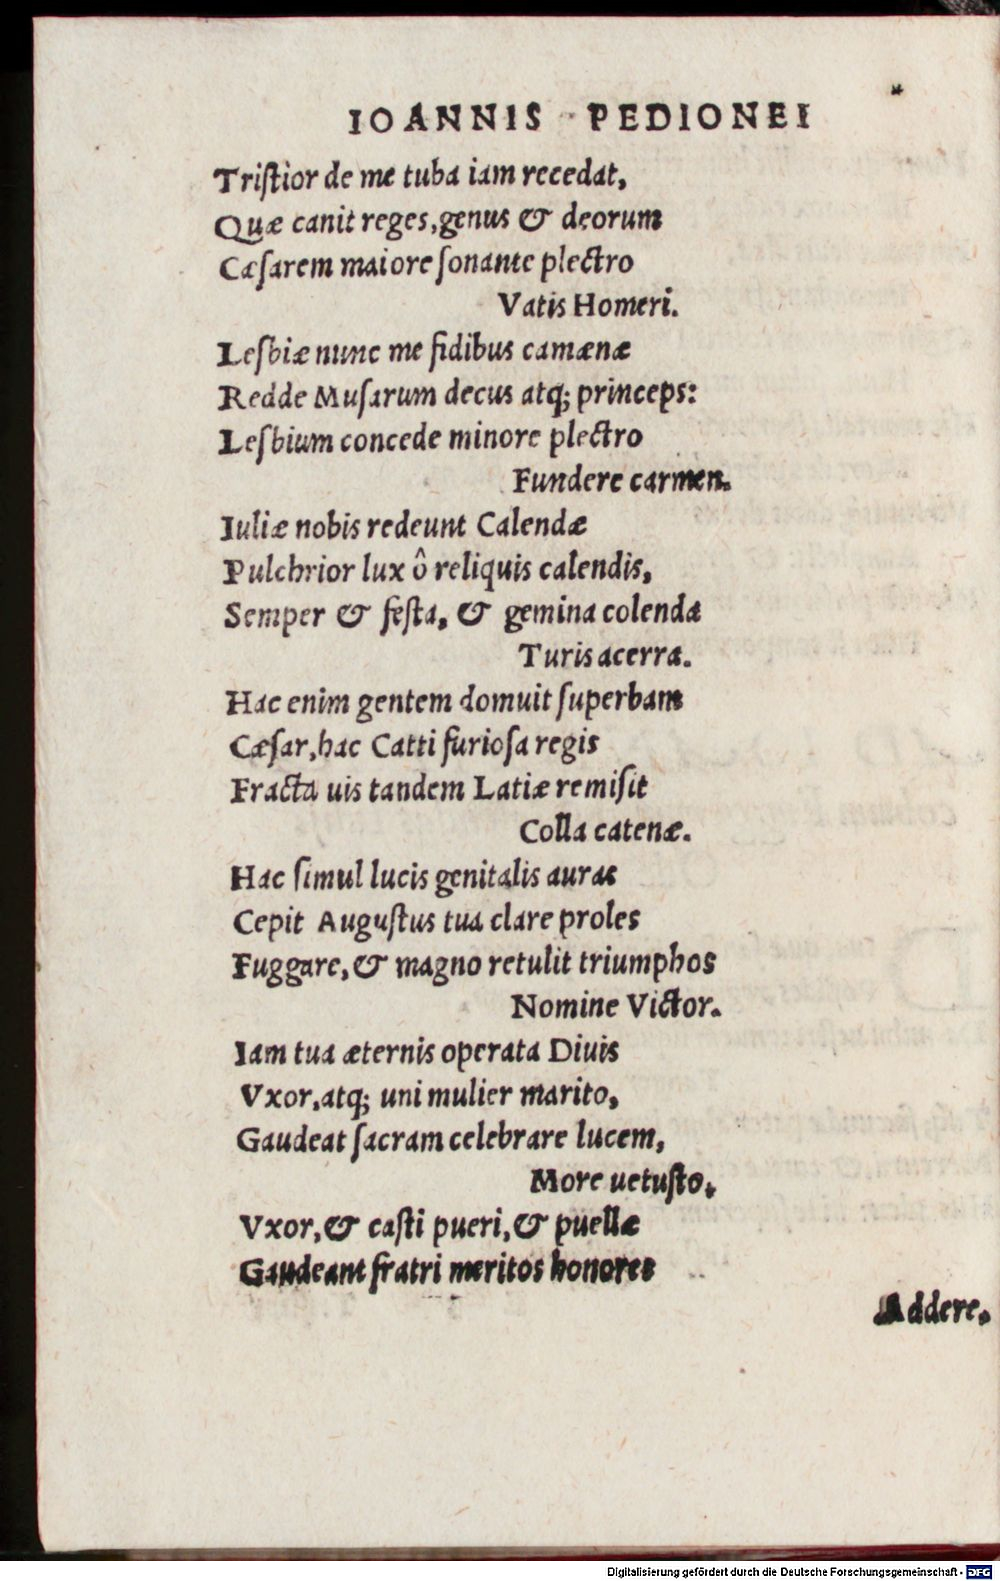 IOANNIS PEDIONEI
Triſtior de me tuba iam recedat,
Quæ canit reges, genus & deorum
Cæſarem maiore ſonante plectro
Vatis Homeri.
Lesbiæ nunc me fidibus camænæ
Redde Muſarum decus atq; princeps:
Lesbium concede minore plectro
Fundere carmen.
Iuliæ nobis redeunt Calendæ
Pulchrior lux ô reliquis calendis,
Semper & feſta, & gemina colenda
Turis acerra.
Hac enim gentem domuit ſuperbam
Cæſar, hac Catti furioſa regis
Fracta uis tandem Latiæ remiſit
Colla catenæ.
Hac ſimul lucis genitalis auras
Cepit Auguſtus tua clare proles
Fuggare, & magno retulit triumphos
Nomine Victor.
Iam tua æternis operata Diuis
Vxor, atq; uni mulier marito,
Gaudeat ſacram celebrare lucem,
More uetuſto,
Vxor, & caſti pueri, & puellæ
Gaudeant fratri meritos honores
Addere.
Digitalisierung gefördert durch die Deutsche Forschungsgemeinschaft - DFG